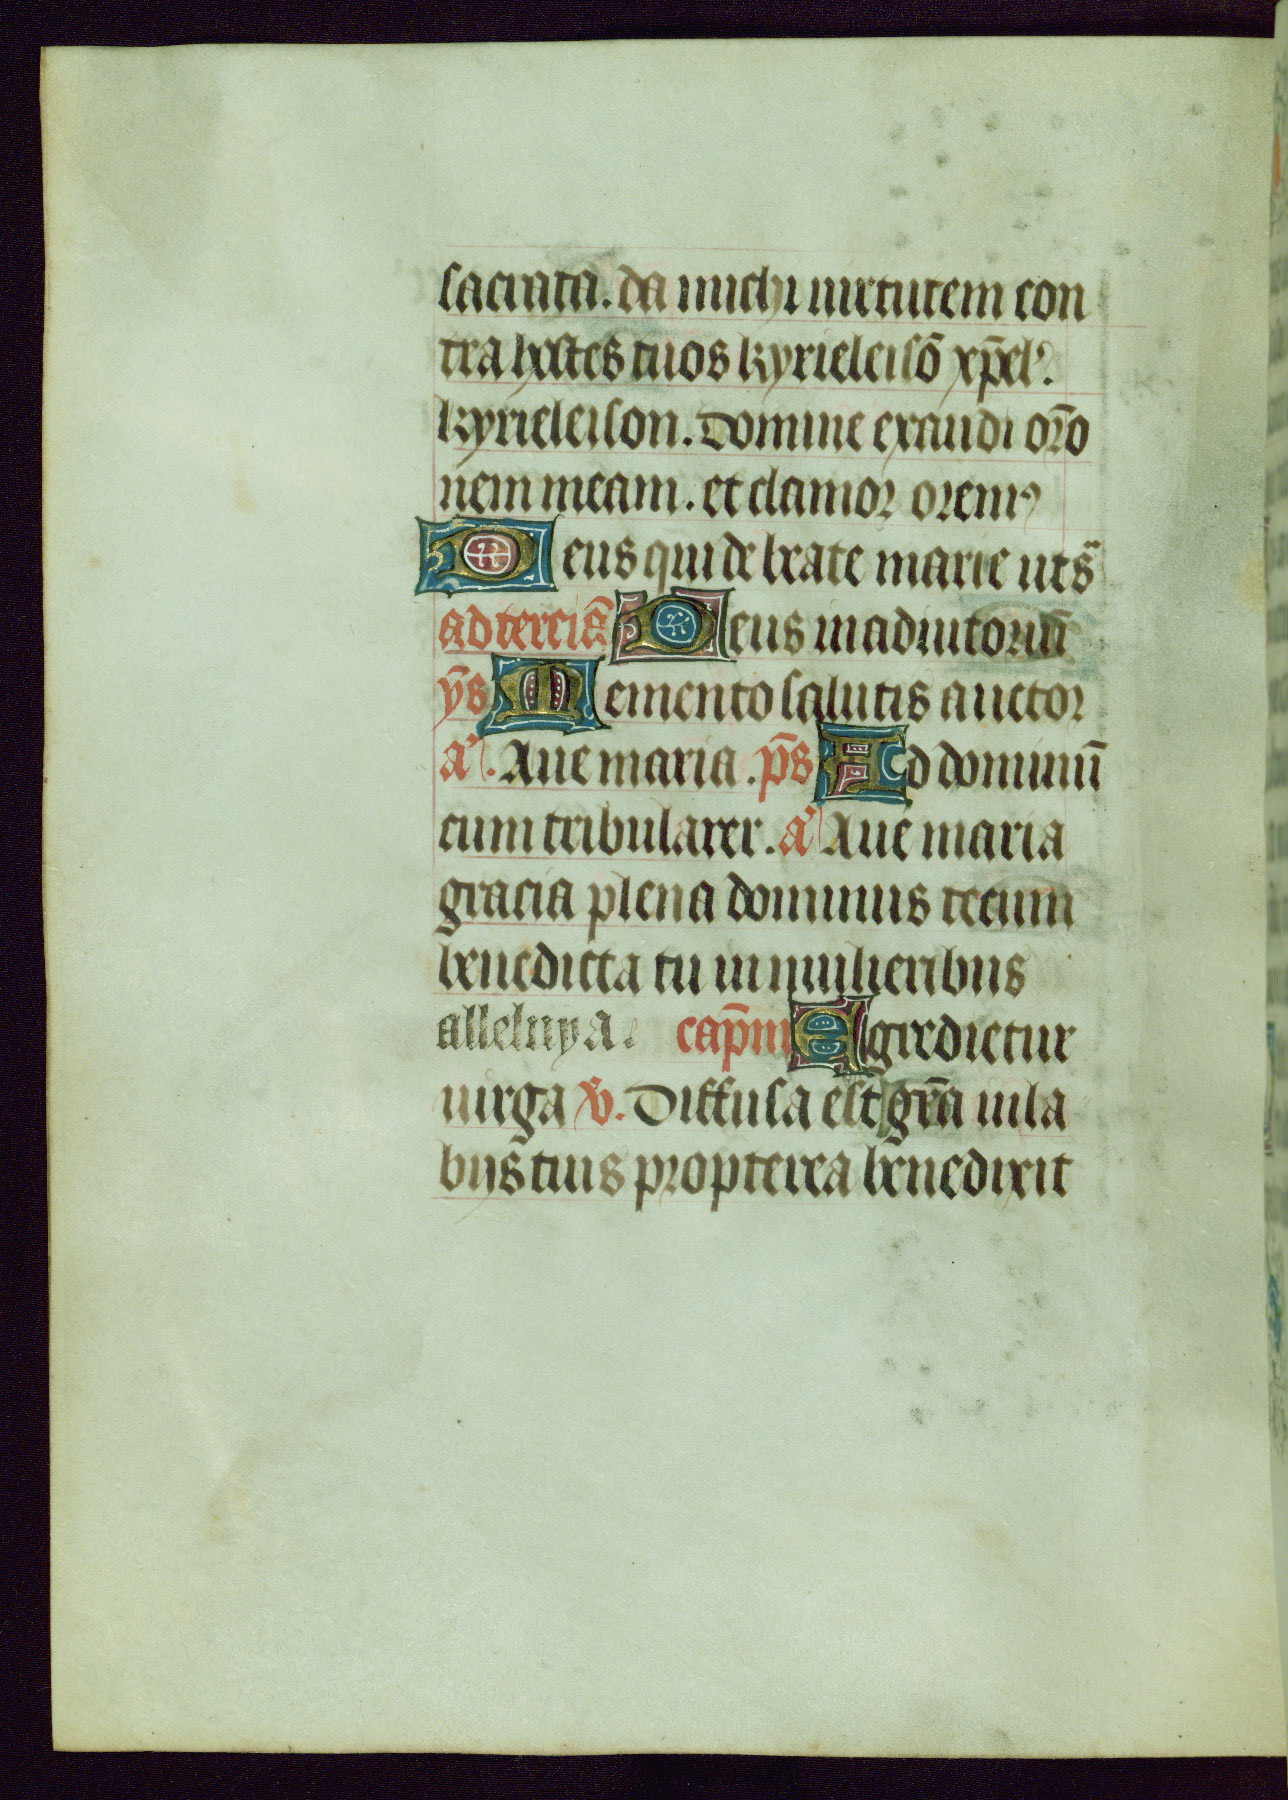 sacrata. da michi uirtutem con
tra hostes tuos kyrieleisō xp̄el'.
kyrieleison. Domine exaudi or̄o
nem meam. et clamor oremꝰ
Deus qui de beate marie uts̄
ad terciā Deus in adiutoriū
ym̄s Memento salutis auctor
a'. Aue maria. ps̄ Ad dominū
cum tribularer. a' Aue maria
gracia plena dominus tecum
benedicta tu in mulieribus
alleluya. cap̄m Egredietur
uirga v̄. Diffusa est gr̄a in la
bijs tuis propterea benedixit